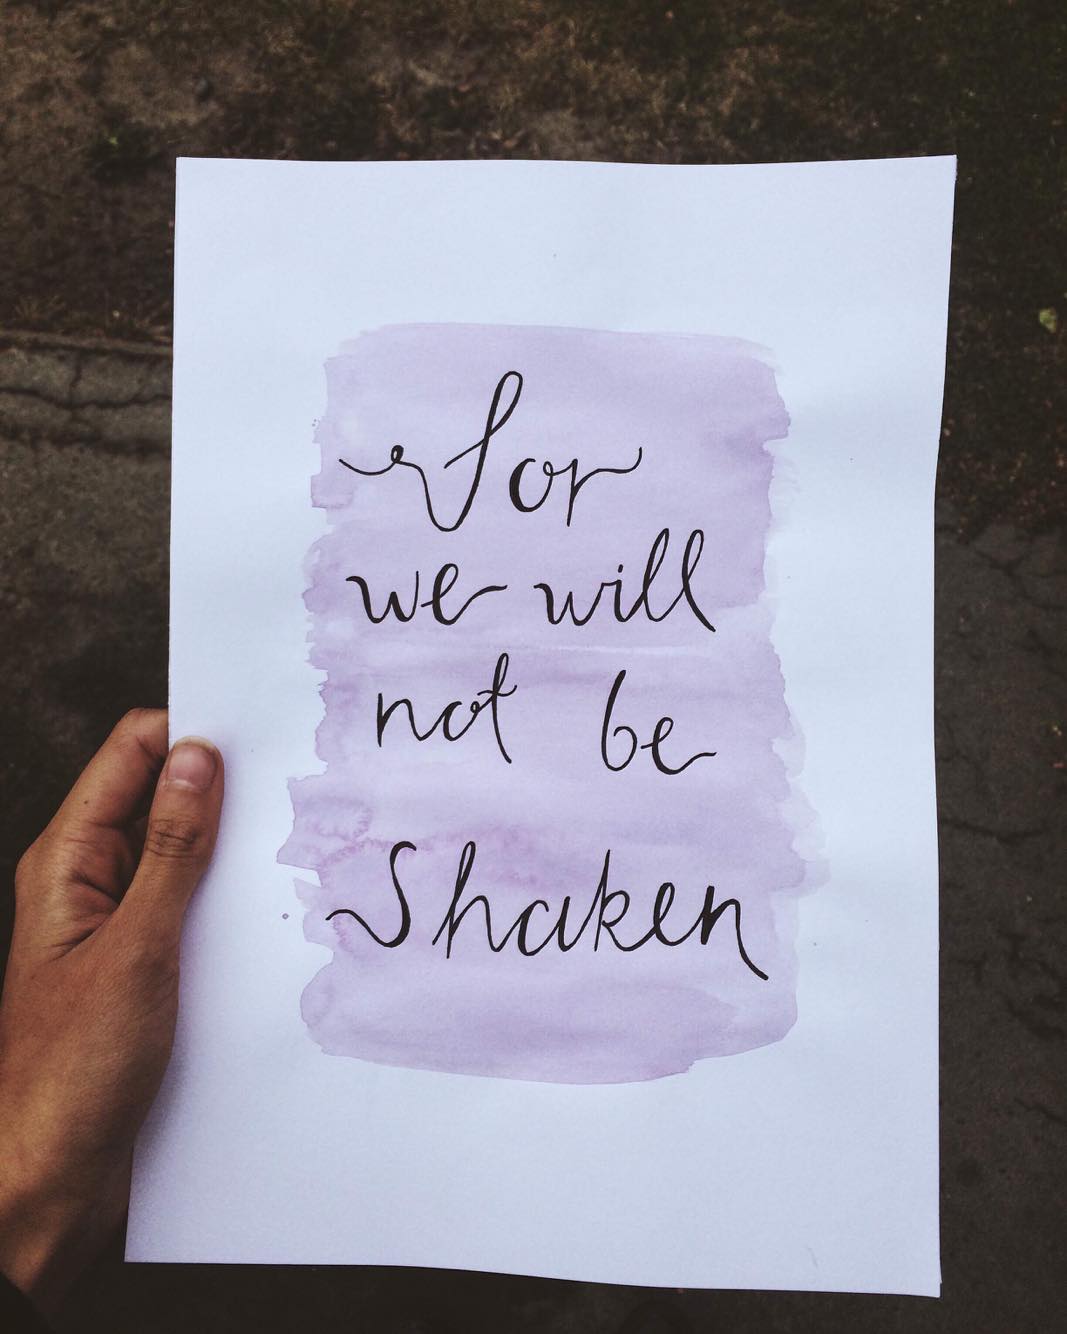 For
we will
not be
Shaken